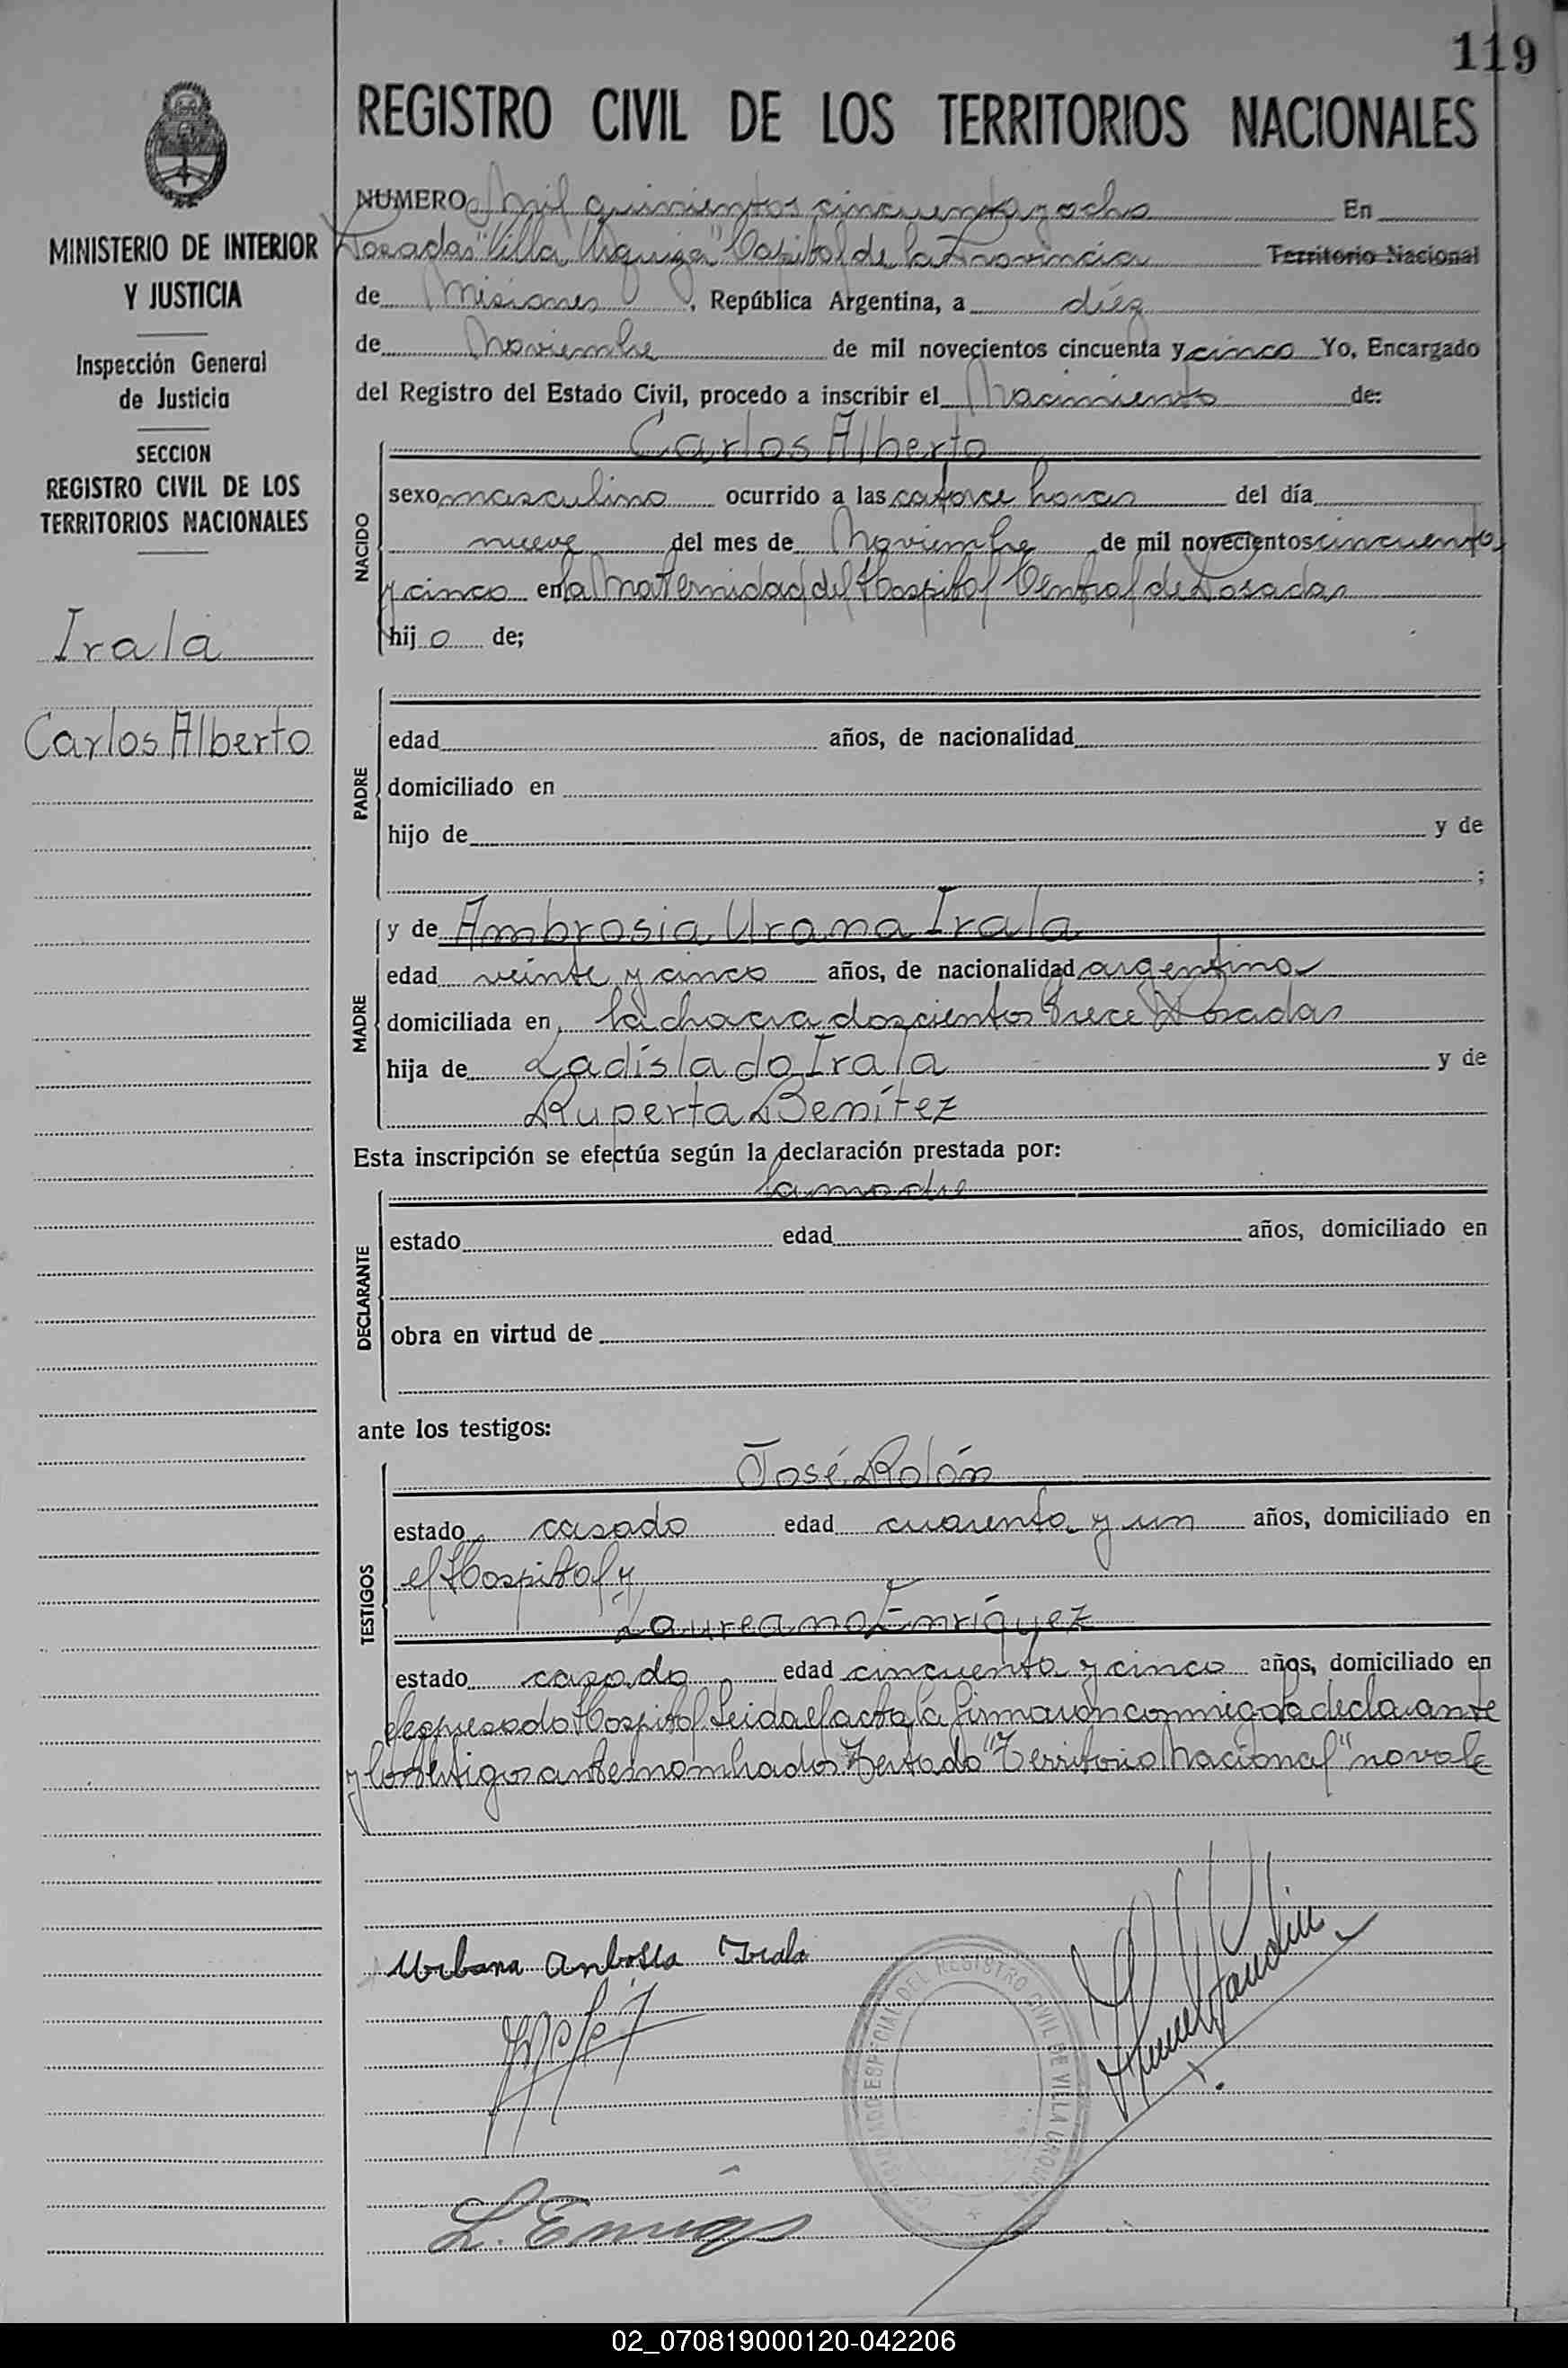 119
REGISTRO CIVIL DE LOS TERRITORIOS NACIONALES
MINISTERIO DE INTERIOR
Y JUSTICIA
Inspección General
de Justicia
SECCION
REGISTRO CIVIL DE LOS
TERRITORIOS NACIONALES
Irala
Carlos Alberto
NUMERO Mil quinientos cincuenta y ocho En
Posadas "Villa Urquiza" Capital de la Provincia Territorio Nacional
de Misiones, República Argentina, a diéz
de Noviembre de mil novecientos cincuenta y cinco Yo, Encargado
del Registro del Estado Civil, procedo a inscribir el Nacimiento de:
NACIDO
Carlos Alberto
sexo masculino ocurrido a las catorce horas del día
nueve del mes de Noviembre de mil novecientos cincuenta
y cinco en la Maternidad del Hospital Central de Posadas
hijo de;
PADRE
edad años, de nacionalidad
domiciliado en
hijo de y de
;
MADRE
y de Ambrosia Urana Irala
edad veinte y cinco años, de nacionalidad argentina
domiciliada en la chacra doscientos trece Posadas
hija de Ladíslado Irala y de
Ruperta Benítez
Esta inscripción se efectúa según la declaración prestada por:
DECLARANTE
la madre
estado edad años, domiciliado en
obra en virtud de
ante los testigos:
TESTIGOS
José Rolón
estado casado edad cuarenta y un años, domiciliado en
el Hospital y
Laureano Enríquez
estado casado edad cincuenta y cinco años, domiciliado en
el espresado Hospital. Leida el acta, la firmaron conmigo la declarante
y los testigos antes nombrados. Testado "Territorio Nacional" no vale
Urbana Anbosia Irala
L. Enriqz
ESPECIAL DEL REGISTRO CIVIL DE VILLA URQUIZA
02_070819000120-042206